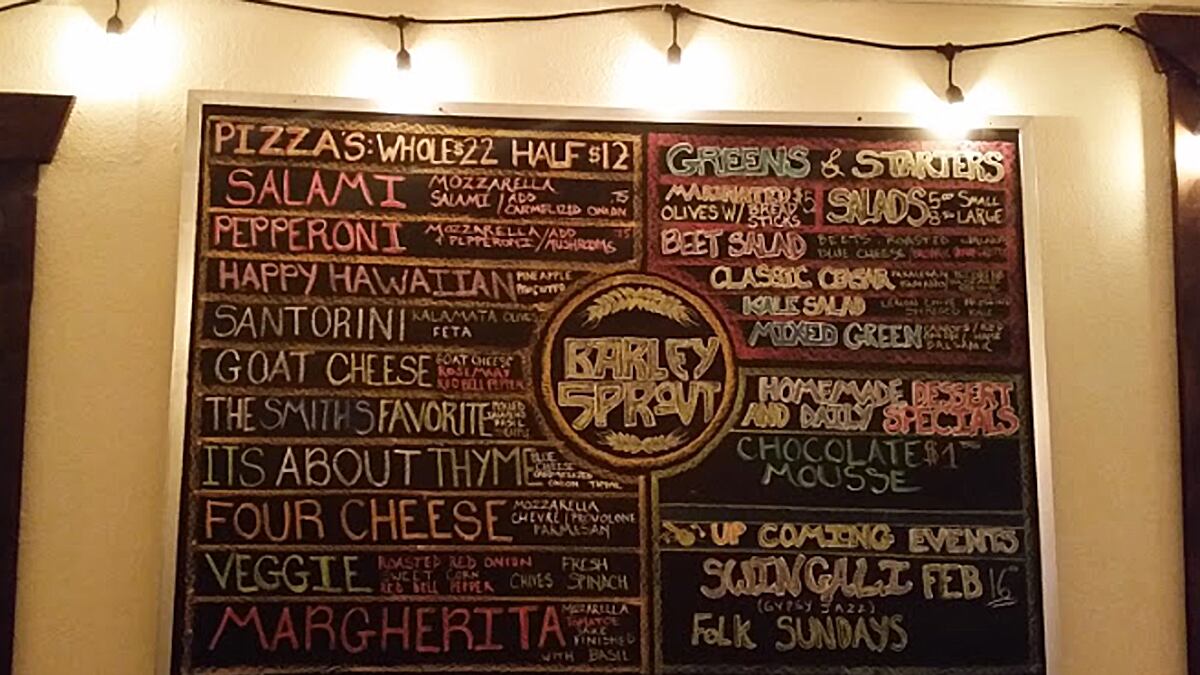 PIZZA'S: WHOLE $22 HALF $12
SALAMI MOZZARELLA
SALAMI / ADD .75
CARMELIZED ONION
PEPPERONI MOZZARELLA/ADD
+ PEPPERONI/MUSHROOMS
HAPPY HAWAIIAN PINEAPPLE
PROSCUITTO
SANTORINI KALAMATA OLIVES
FETA
GOAT CHEESE GOAT CHEESE
ROSEMARY
RED BELL PEPPER
THE SMITHS FAVORITE PICKLED
JALAPENO
BASIL
ITS ABOUT THYME BLUE
CHEESE
CARAMELIZED
ONION THYME
FOUR CHEESE MOZZARELLA
CHEVRE/PROVOLONE
PARMESAN
VEGGIE ROASTED RED ONION FRESH
SWEET CORN CHIVES SPINACH
RED BELL PEPPER
MARGHERITA MOZZARELLA
TOMATOE
FINISHED
WITH BASIL
BARLEY
SPROUT
GREENS & STARTERS
MARINATED $5
OLIVES W/ BREAD
STICKS
SALADS 5 SMALL
8 LARGE
BEET SALAD BEETS ROASTED
BLUE CHEESE
CLASSIC CEASAR PARMESAN
KALE SALAD
SHREDED KALE
MIXED GREEN
BALSAMIC
HOMEMADE DESSERT
AND DAILY SPECIALS
CHOCOLATE $1
MOUSSE
UP COMING EVENTS
SWINGALI FEB 16
(GYPSY JAZZ)
FOLK SUNDAYS